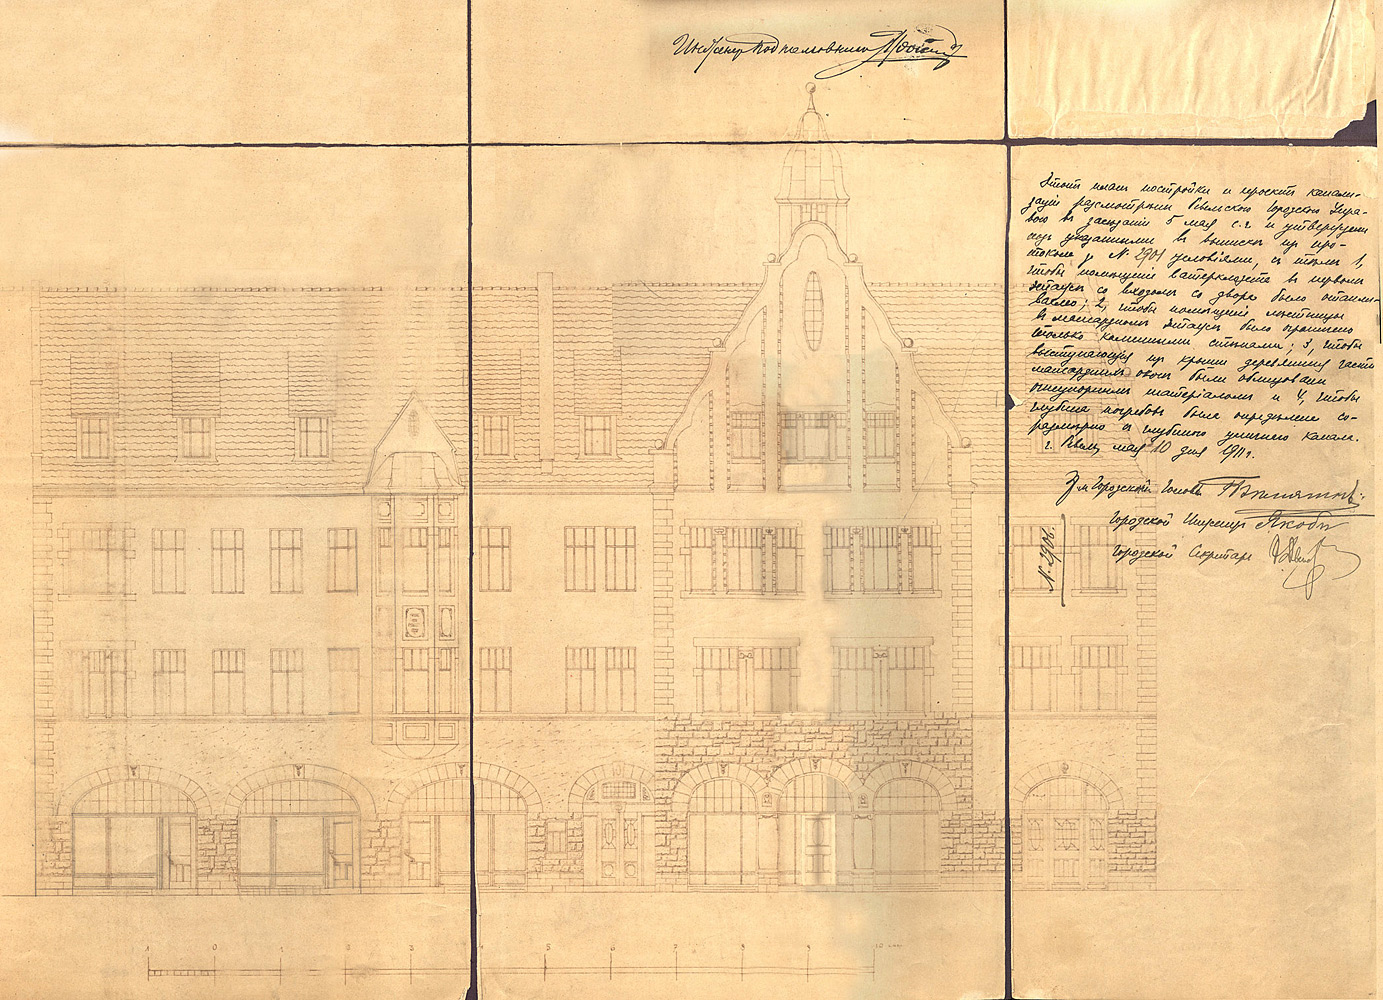 Инженер Подполковник
Этотъ планъ постройки и проектъ канали-
зацiи разсмотрѣны Ревельскою Городскою Упра-
вою въ засѣданiи 5 мая с.г. и утверждены
подъ указанными въ выпискѣ изъ про-
токола у N. 2901 условiями, съ тѣмъ 1,
чтобы помѣщенiе ватерклозета въ первомъ
этажѣ со входомъ со двора было оставлено
; 2, чтобы помѣщенiе лѣстницы
въ мансардномъ этажѣ было ограничено
только каменными стѣнами; 3, чтобы
выступающiя изъ крыши деревянныя части
мансардныхъ оконъ были облицованы
огнеупорнымъ матерiаломъ и 4, чтобы
глубина погребовъ была опредѣлена со-
размѣрно съ глубиною уличнаго канала.
г. Ревель, мая 10 дня 1911 г.
Городской Головы
Городской Инженеръ Якоби
Городской Секретарь
N. 2906.
1 0 1 2 3 4 5 6 7 8 9 10